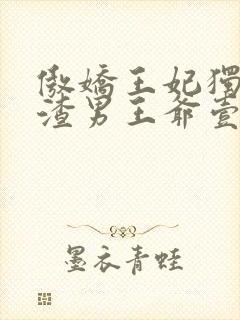 傲嬌王妃獨
渣男王爺壹
墨衣青蛙